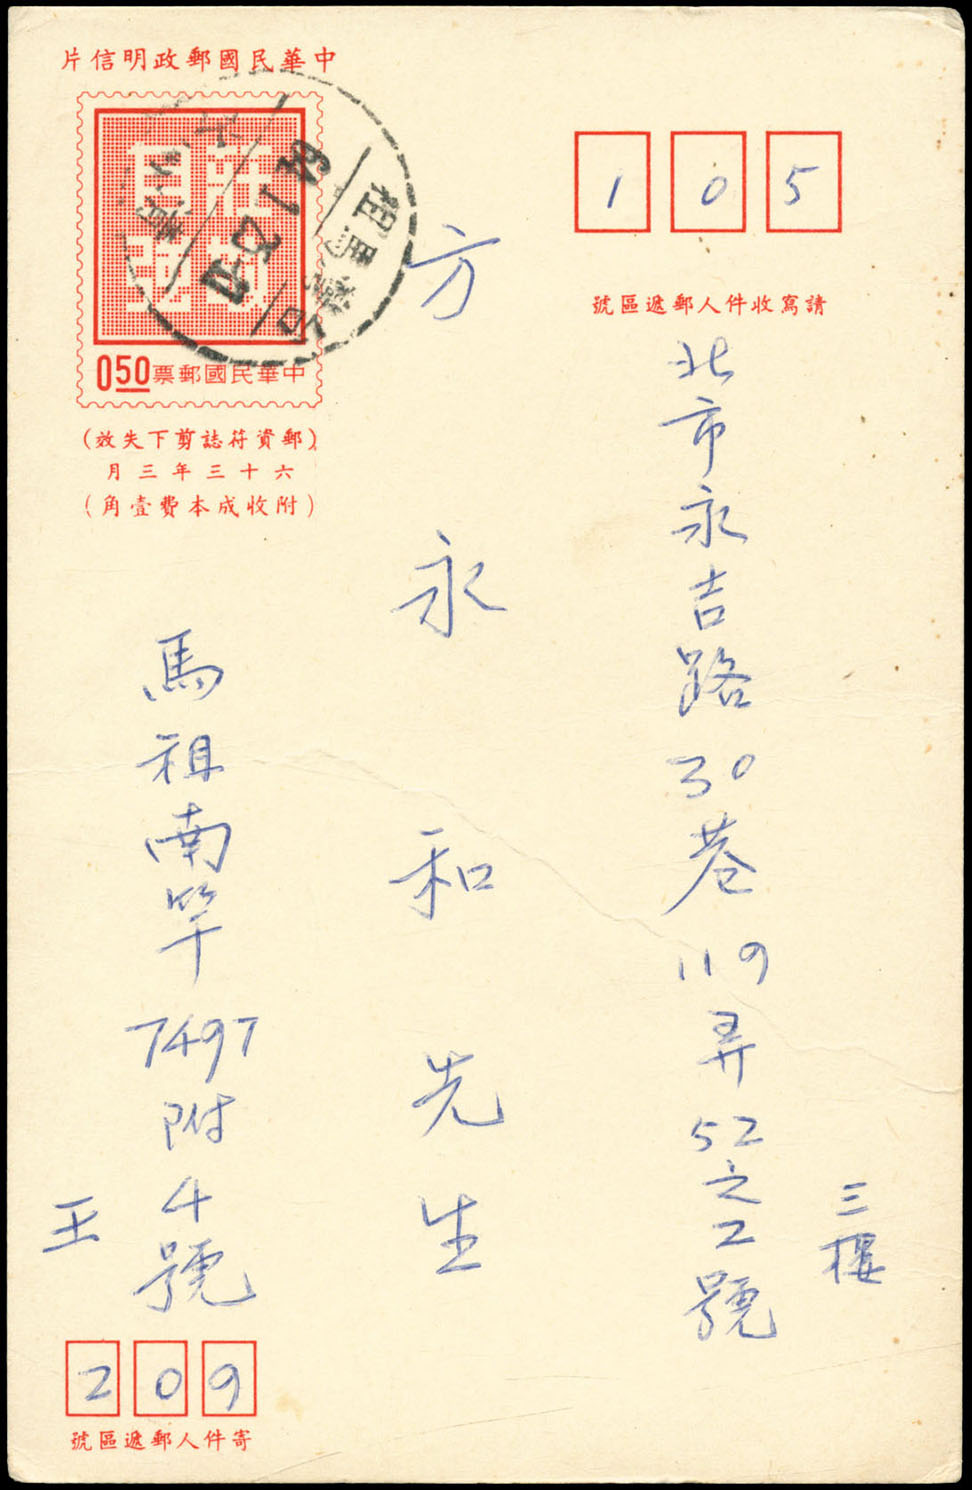 中華民國郵政明信片
莊敬自強
中華民國郵票0.50
(郵資符誌剪下失效)
六十三年三月
(附收成本費壹角)
105
請寫收件人郵遞區號
北市永吉路30巷119弄52之2號
三樓
方永和先生
馬祖南竿7497附4號
王
209
寄件人郵遞區號
馬祖
64.1.25